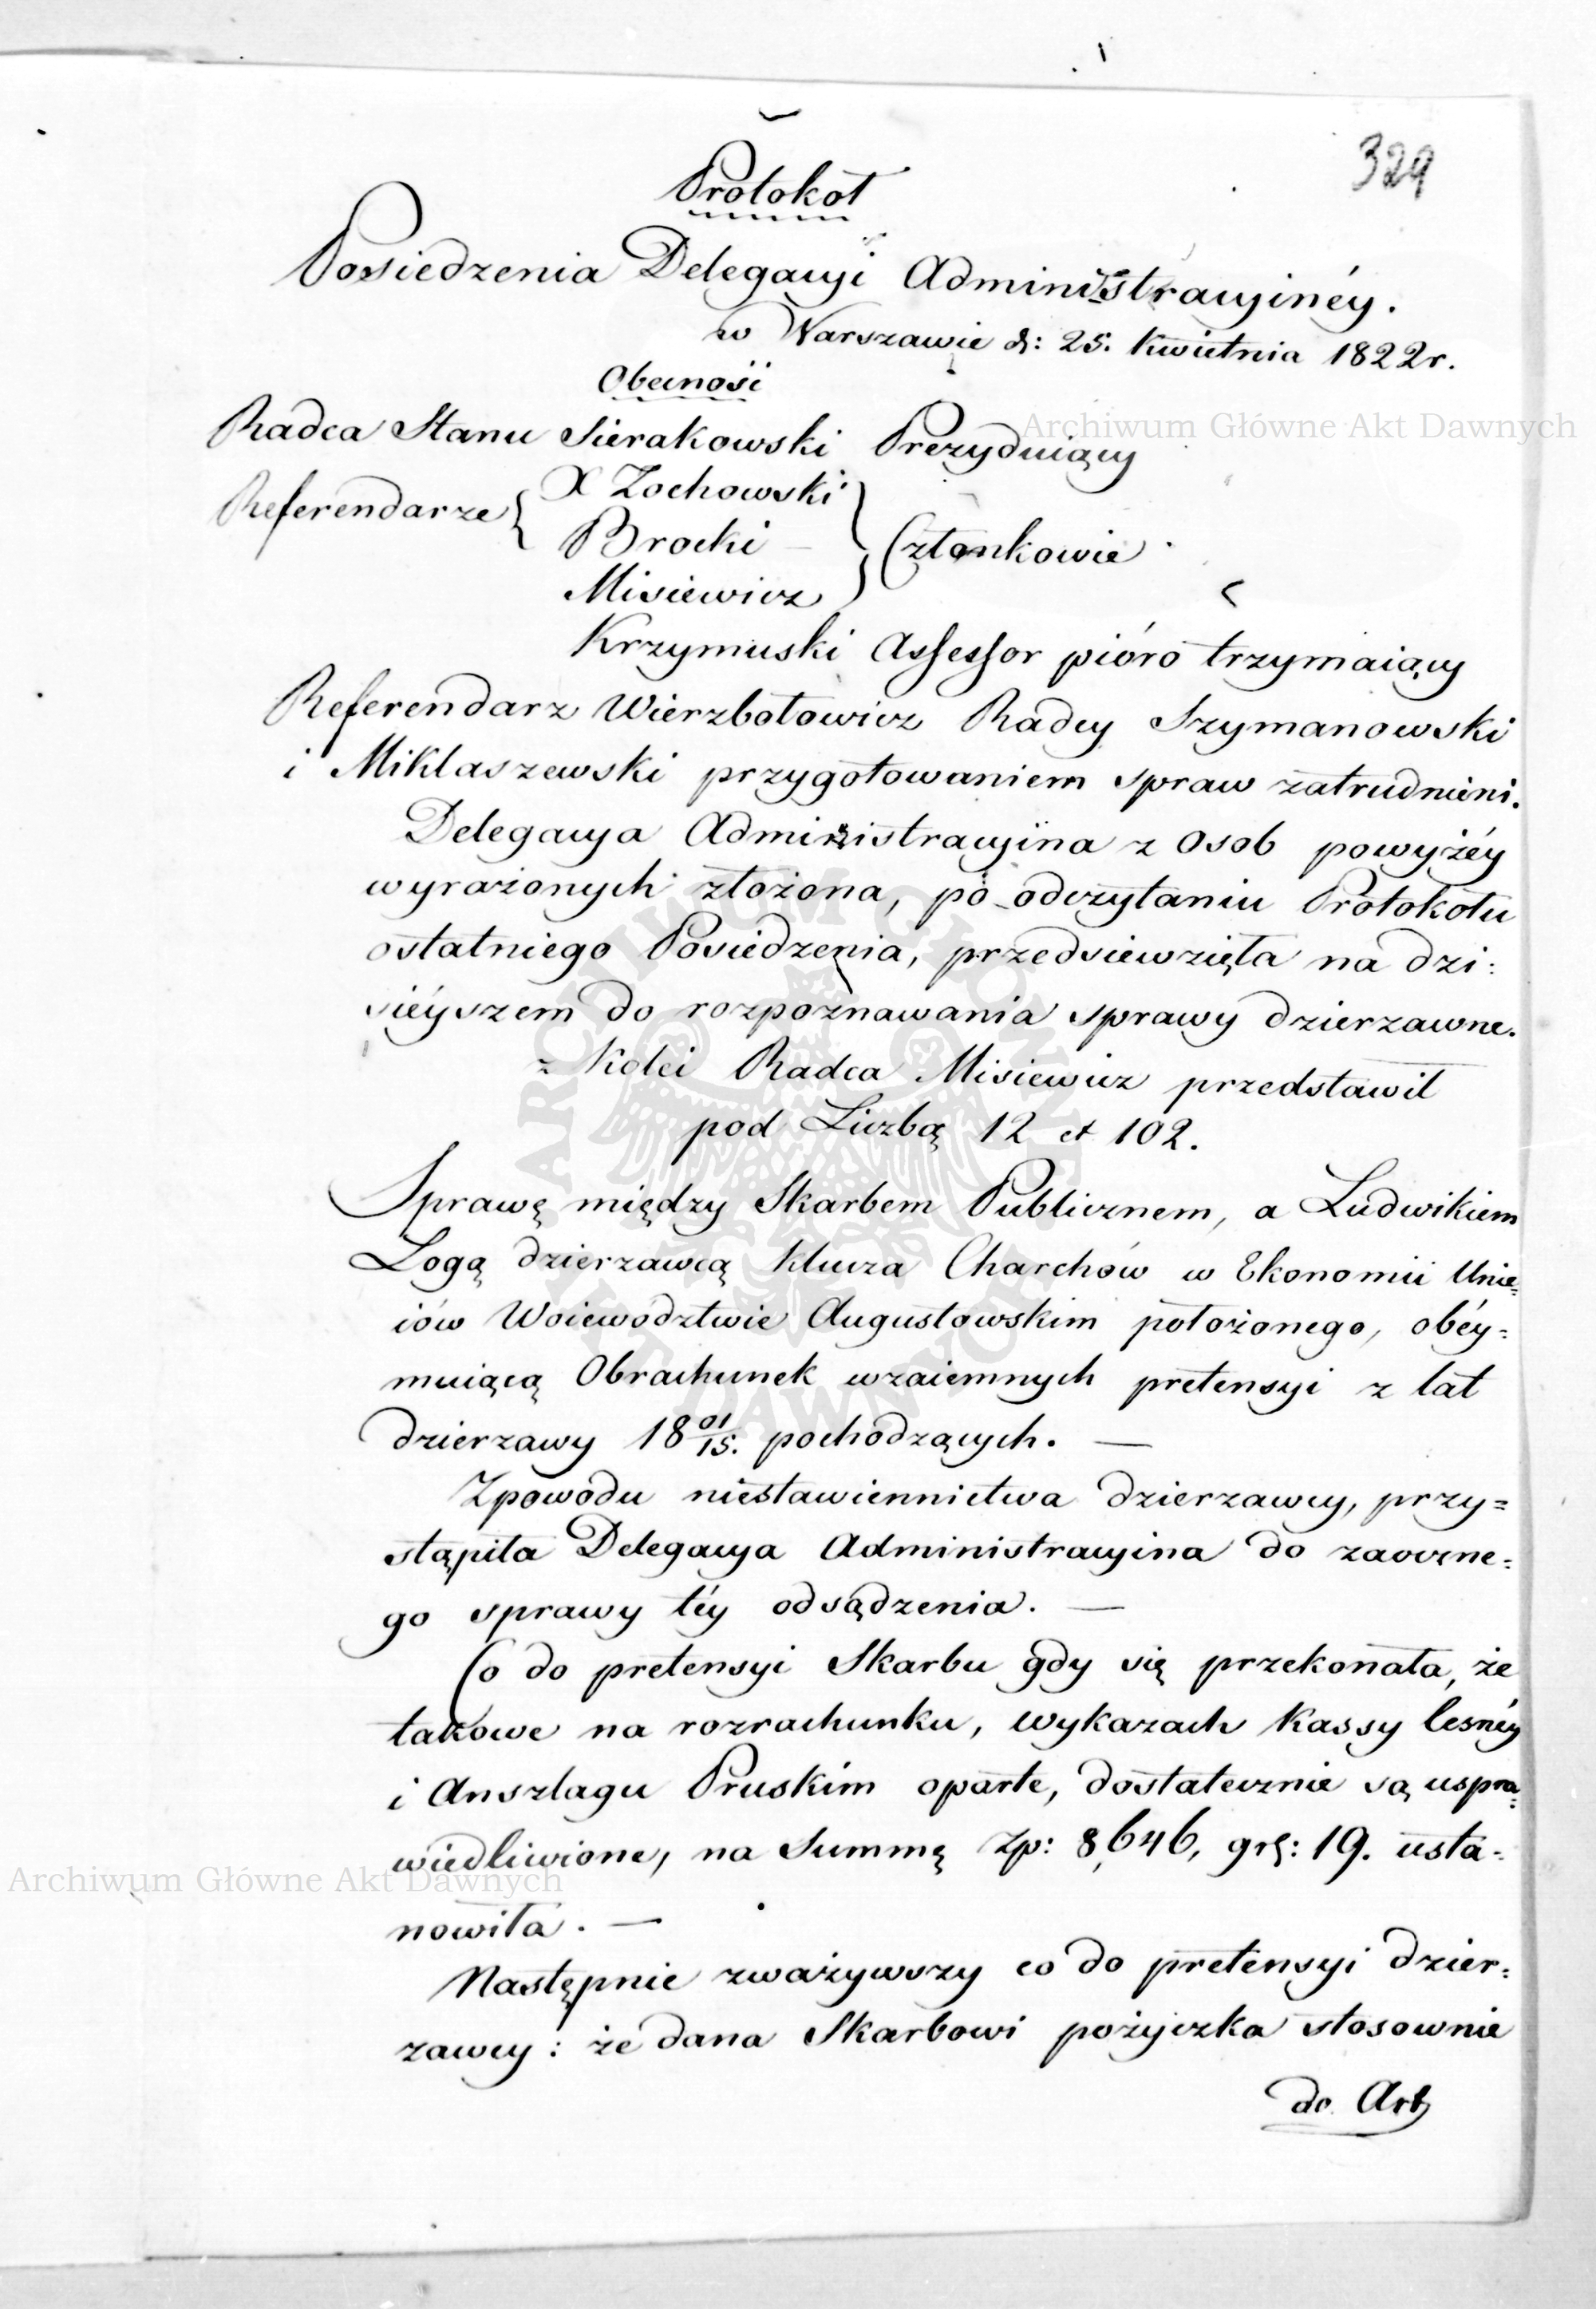 329
Protokół
Posiedzenia Delegacyi Administracyinéy.
w Warszawie d: 25. Kwietnia 1822 r.
Obecności
Radca Stanu Sierakowski Prezyduiący
Archiwum Główne Akt Dawnych
Referendarze { X Zochowski
Brocki — } Członkowie
Misiewicz
Krzymuski Assessor pióro trzymaiący
Referendarz Wierzbołowicz Radcy Szymanowski
i Miklaszewski przygotowaniem spraw zatrudnieni.
Delegacya Administracyina z Osob powyżéy
wyrażonych złożona, po odczytaniu Protokołu
ostatniego Posiedzenia, przedsiewzięła na dzi:
siéyszem do rozpoznawania sprawy dzierzawne.
z Kolei Radca Misiewicz przedstawił
pod Liczbą 12 et 102.
Sprawę między Skarbem Publicznem, a Ludwikiem
Logą dzierzawcą klucza Charchów w Ekonomii Unie=
iów Woiewództwie Augustowskim położonego, obéy=
muiącą Obrachunek wzaiemnych pretensyi z lat
dzierzawy 18 01/15. pochodzących. —
Zpowodu niestawiennictwa dzierzawcy, przy=
stąpiła Delegacya Administracyina do zaoczne=
go sprawy téy odsądzenia. —
Co do pretensyi Skarbu gdy się przekonała, że
takowe na rozrachunku, wykazach Kassy lesnéy
i Anszlagu Pruskim oparte, dostatecznie są uspra=
wiedliwione, na Summę Zp: 8,646, gr: 19. usta-
Archiwum Główne Akt Dawnych
nowiła. —
Następnie zważywszy co do pretensyi dzier=
zawcy: że dana Skarbowi pożyczka stosownie
do Art